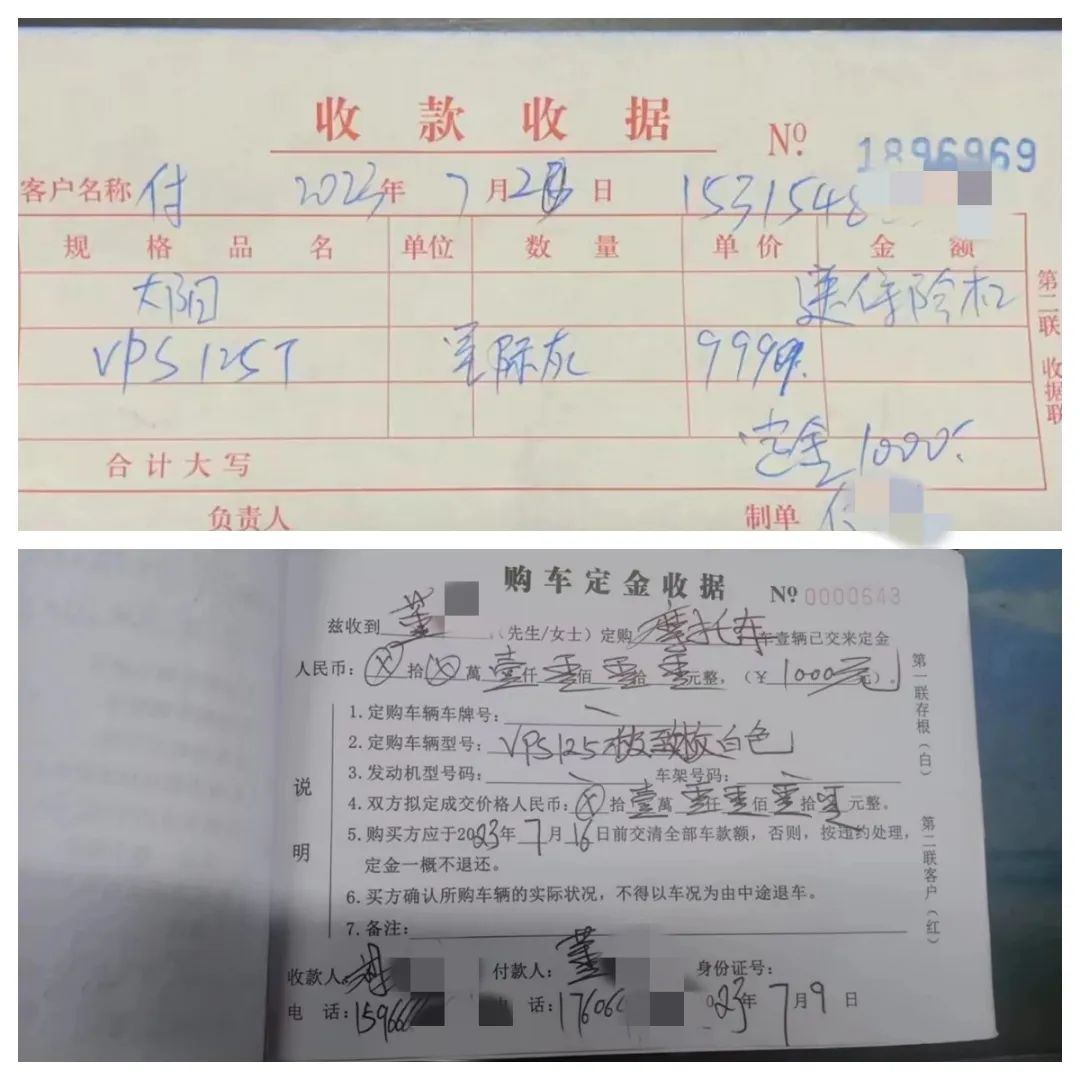 收款收据 No 1896969
客户名称 付 2023年 7月 日 1531548
规格品名 单位 数量 单价 金额
大阳 送保险杠
VPS125T 星际灰 999
定金1000
合计大写
负责人 制单
第二联 收据联
购车定金收据 No 0000643
兹收到 董 (先生/女士)定购 摩托车 车壹辆已交来定金
人民币:ⓧ拾ⓧ萬壹仟零佰零拾零元整,(¥ 1000元)。
说明
1.定购车辆车牌号:
2.定购车辆型号:VPS125 极致版白色
3.发动机型号码: 车架号码:
4.双方拟定成交价格人民币:ⓧ拾壹萬零仟零佰零拾零元整。
5.购买方应于2023年7月16日前交清全部车款额,否则,按违约处理,
定金一概不退还。
6.买方确认所购车辆的实际状况,不得以车况为由中途退车。
7.备注:
收款人: 付款人:董 身份证号:
电 话:15966 电 话:17606 023年7月9日
第一联存根(白)
第二联客户(红)